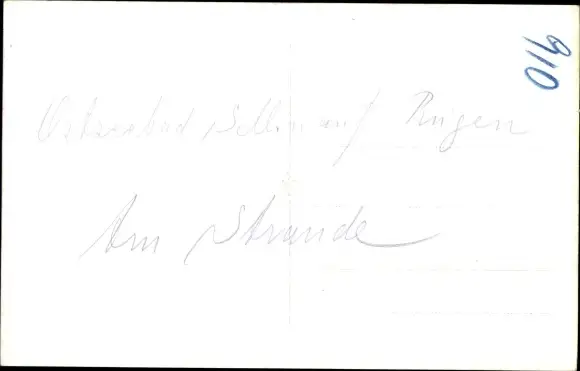 Ostseebad Sellin auf Rügen
Am Strande
910